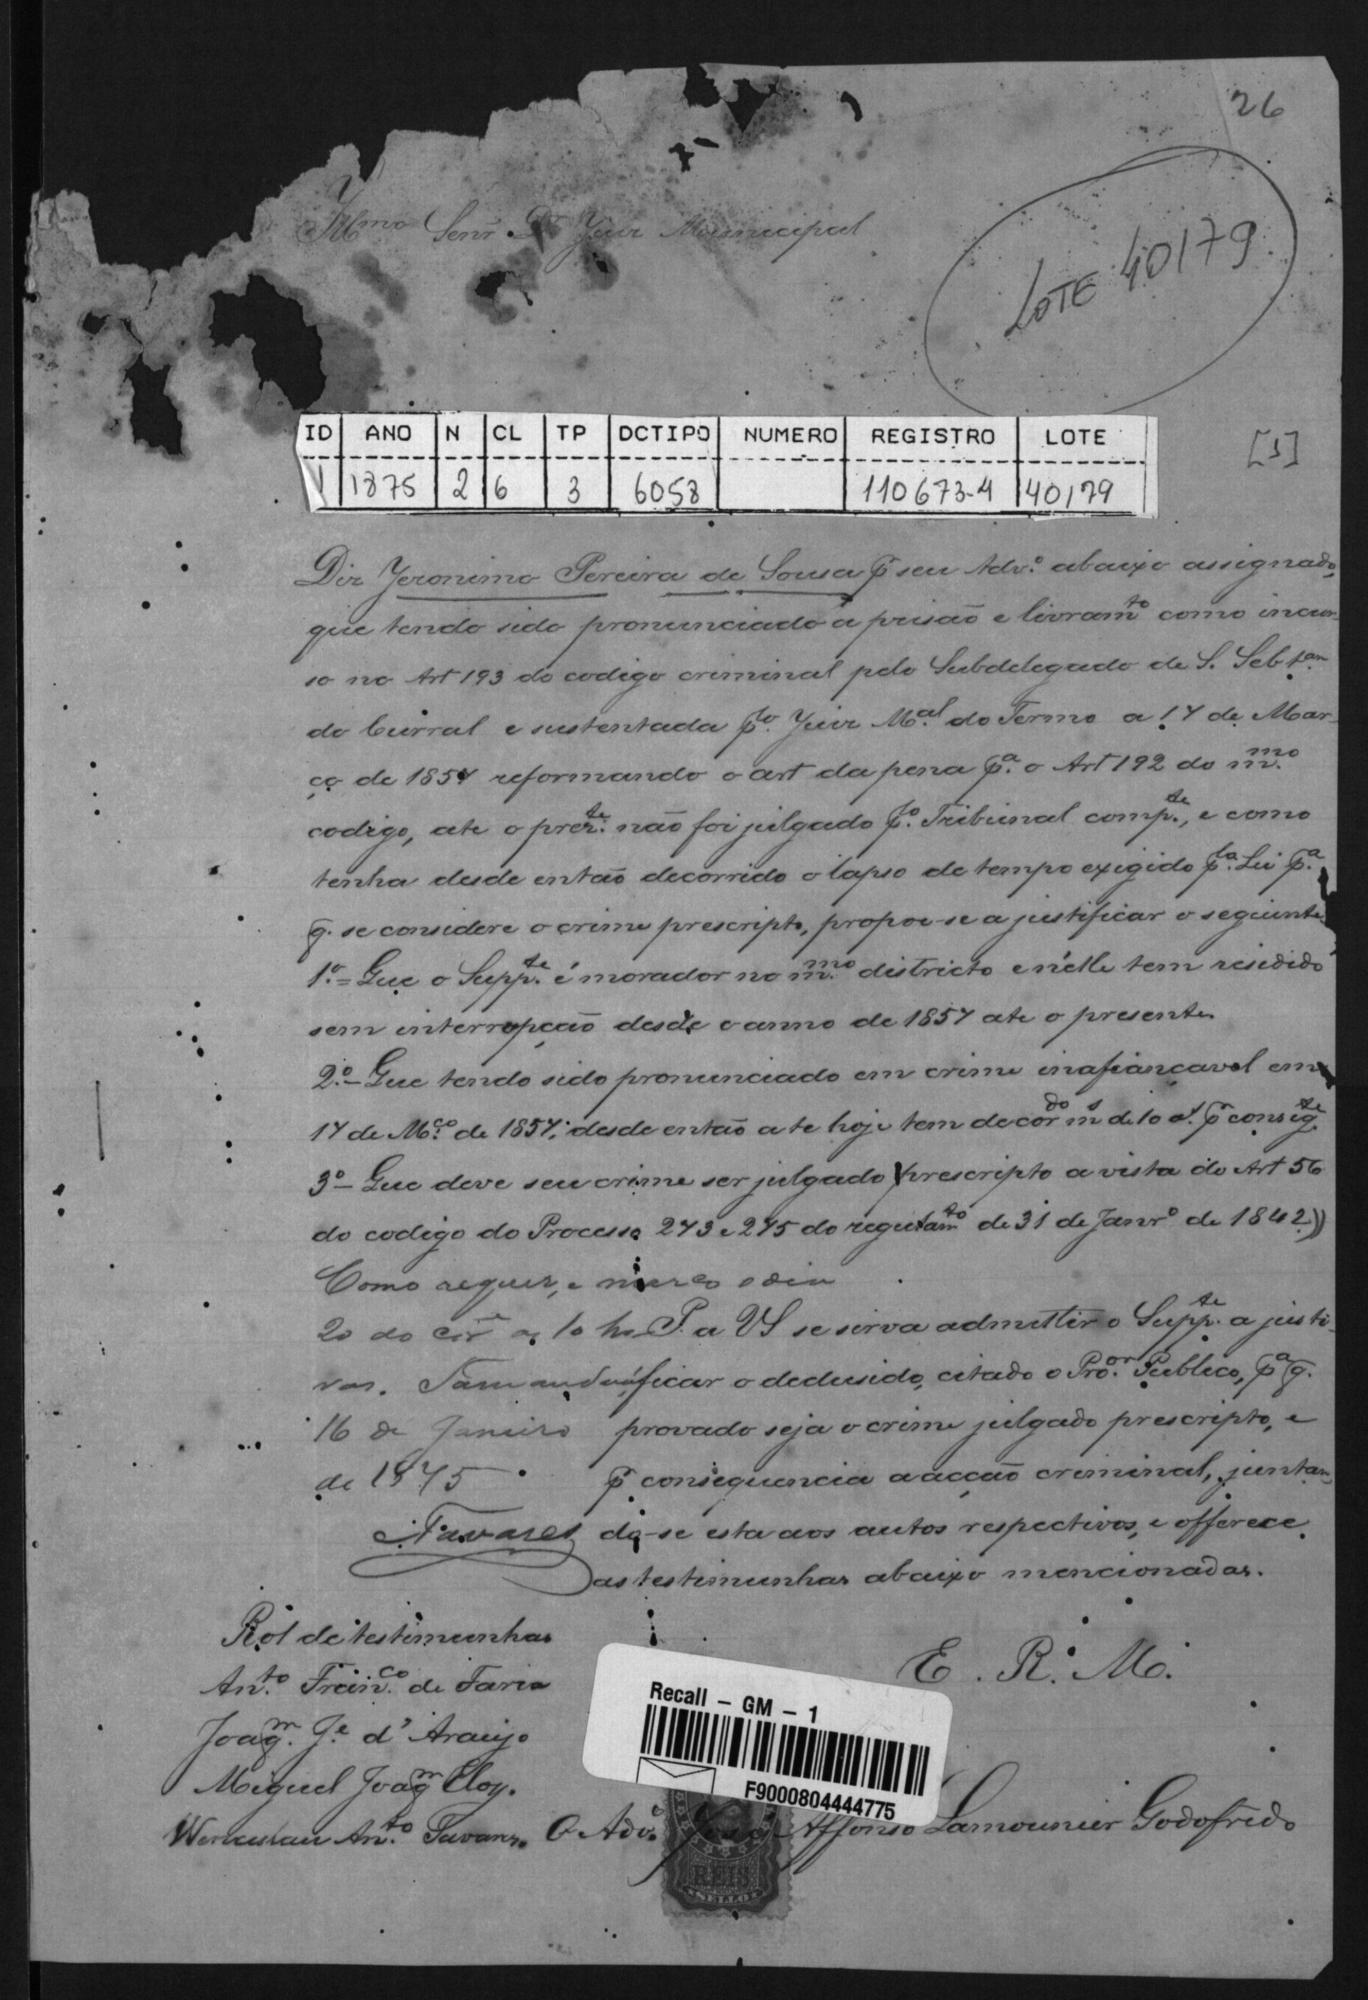 26
Illmo Senr Dr Juiz Municipal
LOTE 40179
ID ANO N CL TP DCTIPO NUMERO REGISTRO LOTE
1 1875 2 6 3 6058 110673-4 40179
[1]
Diz Jeronimo Pereira de Sousa p seu Advo. abaixo assignado,
que tendo sido pronunciado a prisão e livramto como incur-
so no Art 193 do codigo criminal pelo Subdelegado de S. Sebtam
do Curral e sustentada plo. Juiz Mal. do Termo a 17 de Mar-
ço de 1857 reformando o art da pena pa. o Art 192 do mmo.
codigo, ate o prezte. não foi julgado plo. Tribunal compte., e como
tenha desde então decorrido o lapso de tempo exigido pla. Lei pa.
q. se considere o crime prescripto, propoe-se a justificar o seguinte
1o. = Que o Suppte. é morador no mmo. districto e n'elle tem residido
sem interropção desde o anno de 1857 ate o presente.
2o. - Que tendo sido pronunciado em crime inafiançavel em
17 de Mço. de 1857, desde então ate hoje tem decordo ms de 10 as. p consigte.
3o - Que deve seu crime ser julgado prescripto a vista do Art 56
do codigo do Processo 273 e 275 do regulamto de 31 de Janro de 1842))
Como requer, e marco o dia
20 do corre as 10 hs P. a VS se sirva admettir o Suppte. a justi-
ficar o dedusido, citado o Proor. Publico, pa q.
Tamanduá,
16 de Janeiro provado seja o crime julgado prescripto, e
de 1875 p consequencia a acção criminal, juntan-
Tavares do-se esta aos autos respectivos, e offerece
as testimunhas abaixo mencionadas.
Rol de testimunhas
E. R. M.
Anto. Franco. de Faria
Joaqm. Je. d'Araujo
Miguel Joaqm Eloy.
Recall - GM - 1
F9000804444775
Wenceslau Anto. Tavares. O Advo. José Affonso Lamounier Godofredo
REIS
SELLO